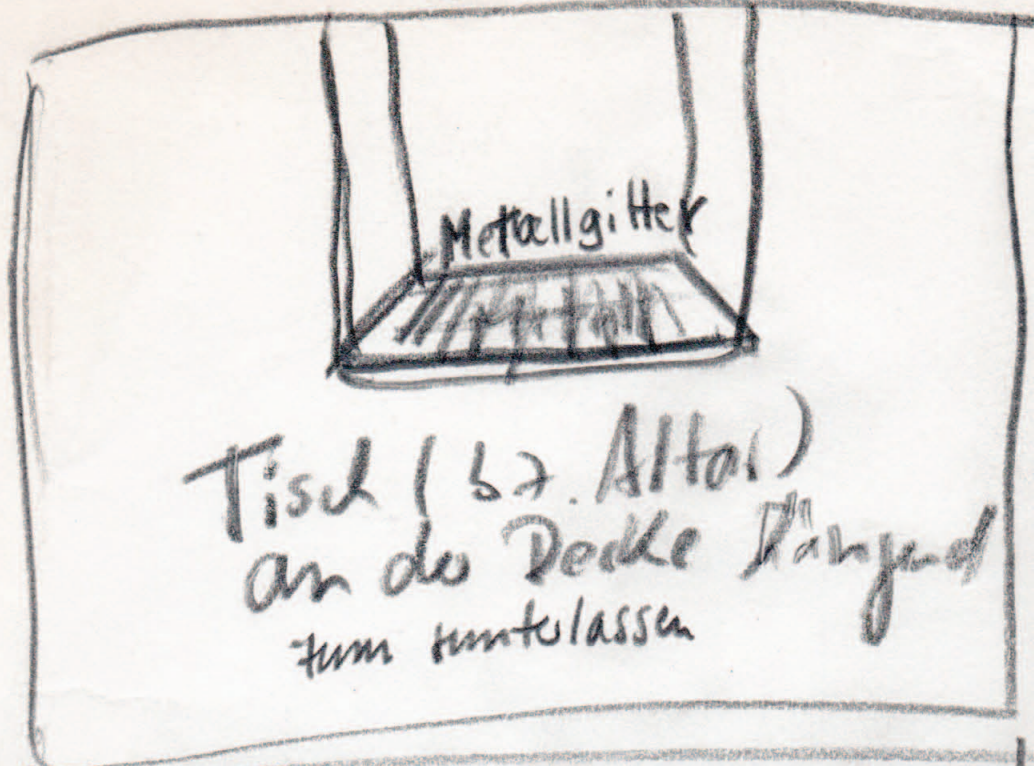 Metallgitter
Tisch (bz. Altar)
an der Decke Hängend
zum runterlassen